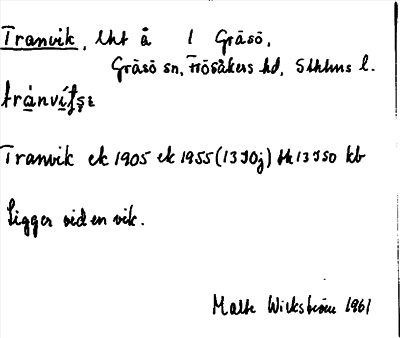 Tranvik, lht å 1 Gräsö,
Gräsö sn, Frösåkers hd, Sthlms l.
Tranvik ek 1905 ek 1955 (13I0j) hk 13I50 kb
Ligger vid en vik.
Malte Wickström 1961